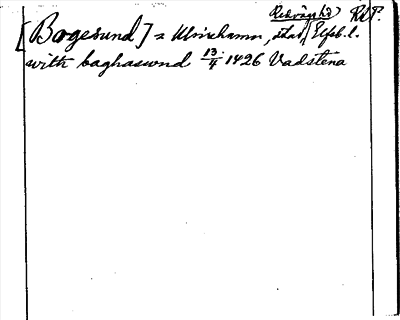 Redvägs hd RAP.
[Bogesund] = Ulricehamn, stad, Elfsb. l.
with baghasund 13/4 1426 Vadstena